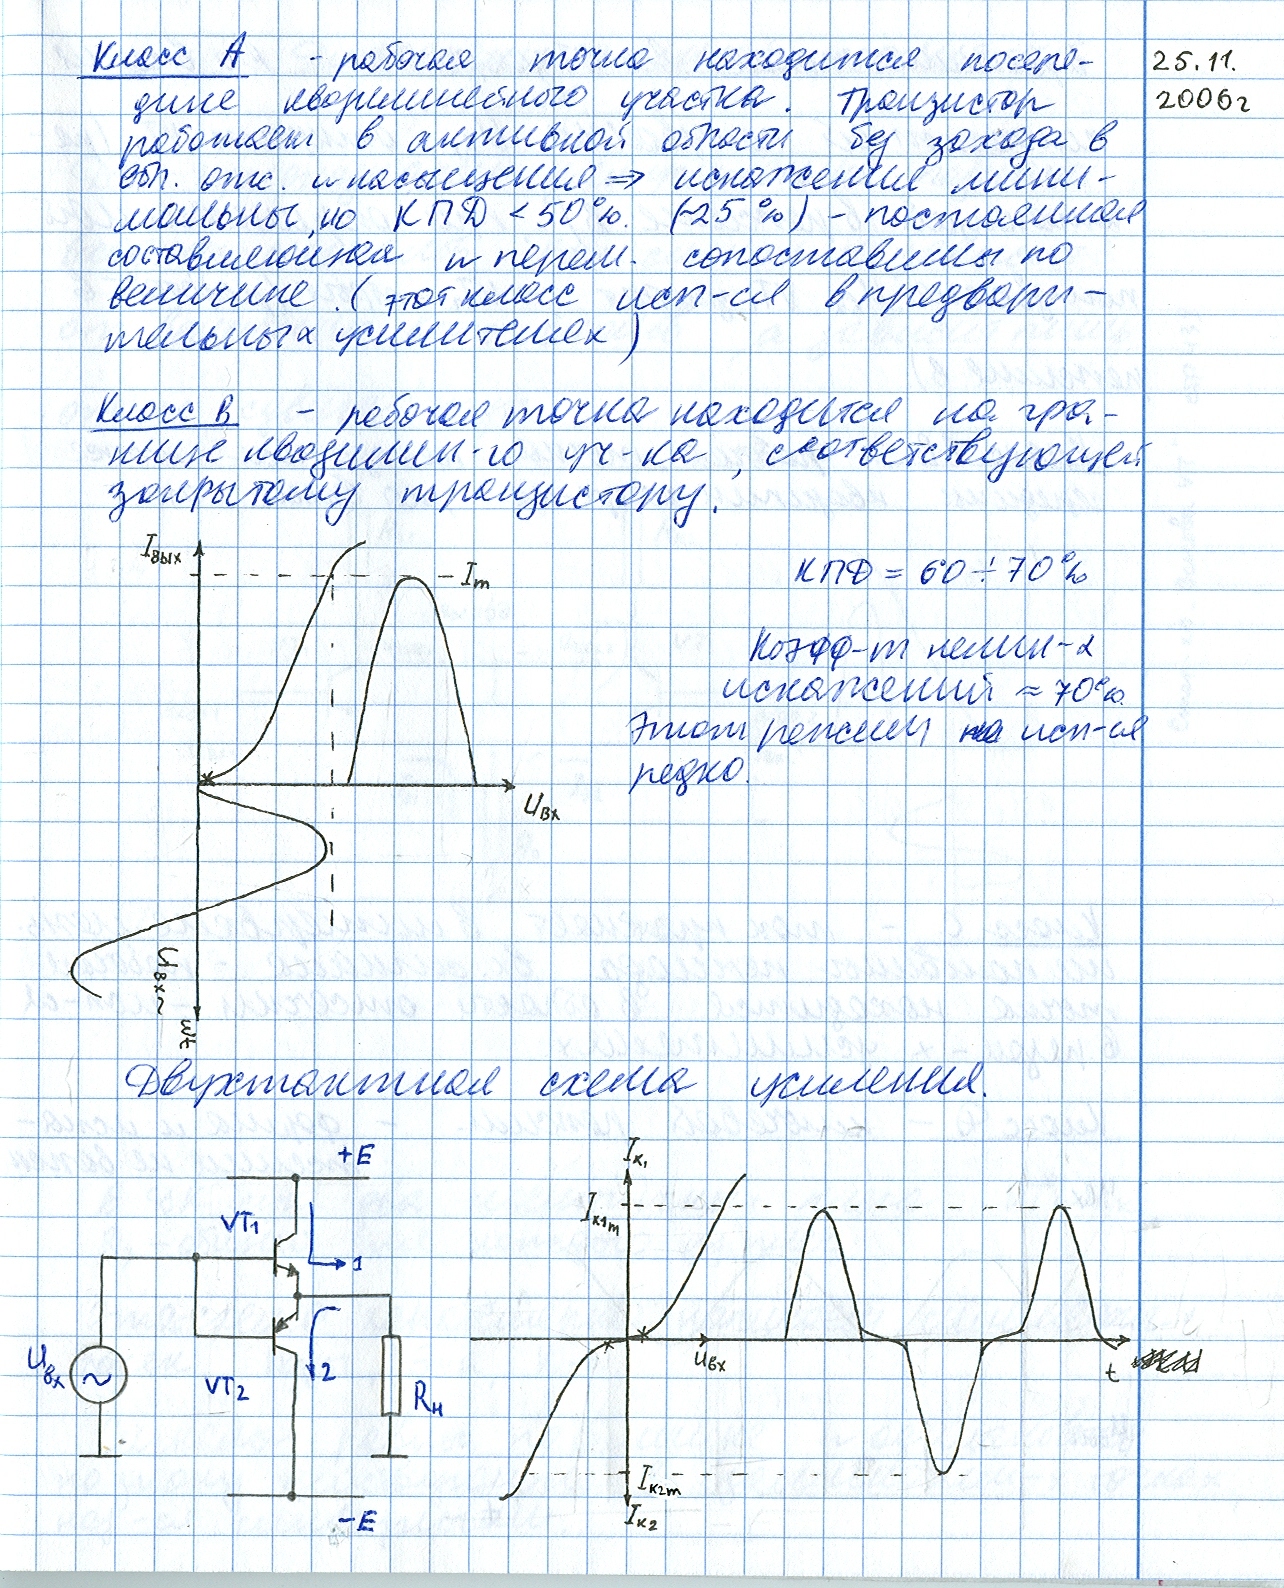 Класс А - рабочая точка находится посере-
дине квазилинейного участка. Транзистор
работает в активной области без захода в
обл. отс. и насыщения ⇒ искажения мини-
мальны, но КПД < 50%. (~25%) - постоянная
составляющая и перем. сопоставимы по
величине. (этот класс исп-ся в предвари-
тельных усилителях)
25.11.
2006г
Класс В - рабочая точка находится на гра-
нице квазилин-го уч-ка, соответствующей
закрытому транзистору.
Iвых
Im
Uвх
Uвх~
wt
КПД = 60÷70%
Коэфф-т нелин-х
искажений ≈ 70%.
Этот режим исп-ся
редко.
Двухтактная схема усиления.
+E
VT1
1
Uвх
VT2
2
Rн
-E
Iк1
Iк1m
Uвх
t
Iк2m
Iк2